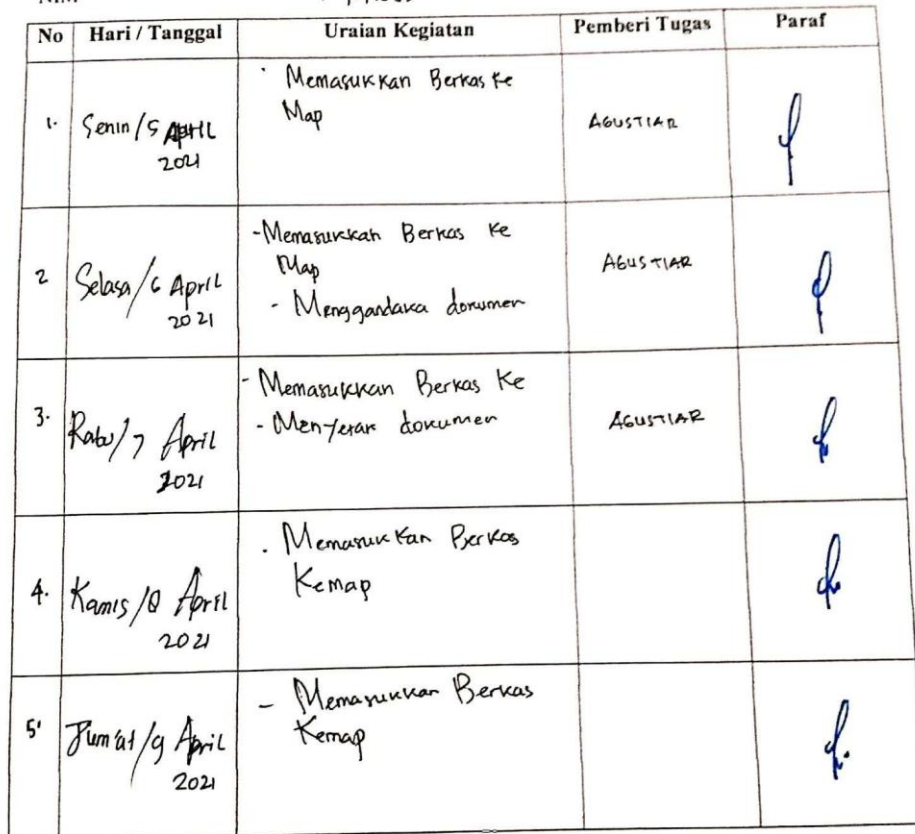 No Hari / Tanggal Uraian Kegiatan Pemberi Tugas Paraf
1. Senin / 5 April
2021
- Memasukkan Berkas ke
Map
AGUSTIAR
2 Selasa / 6 April
2021
- Memasukkan Berkas Ke
Map
- Menggandaka dokumen
AGUSTIAR
3. Rabu / 7 April
2021
- Memasukkan Berkas Ke
- Menyetak dokumen
AGUSTIAR
4. Kamis / 8 April
2021
. Memasukkan Berkas
Kemap
5. Jum'at / 9 April
2021
- Memasukkan Berkas
Kemap